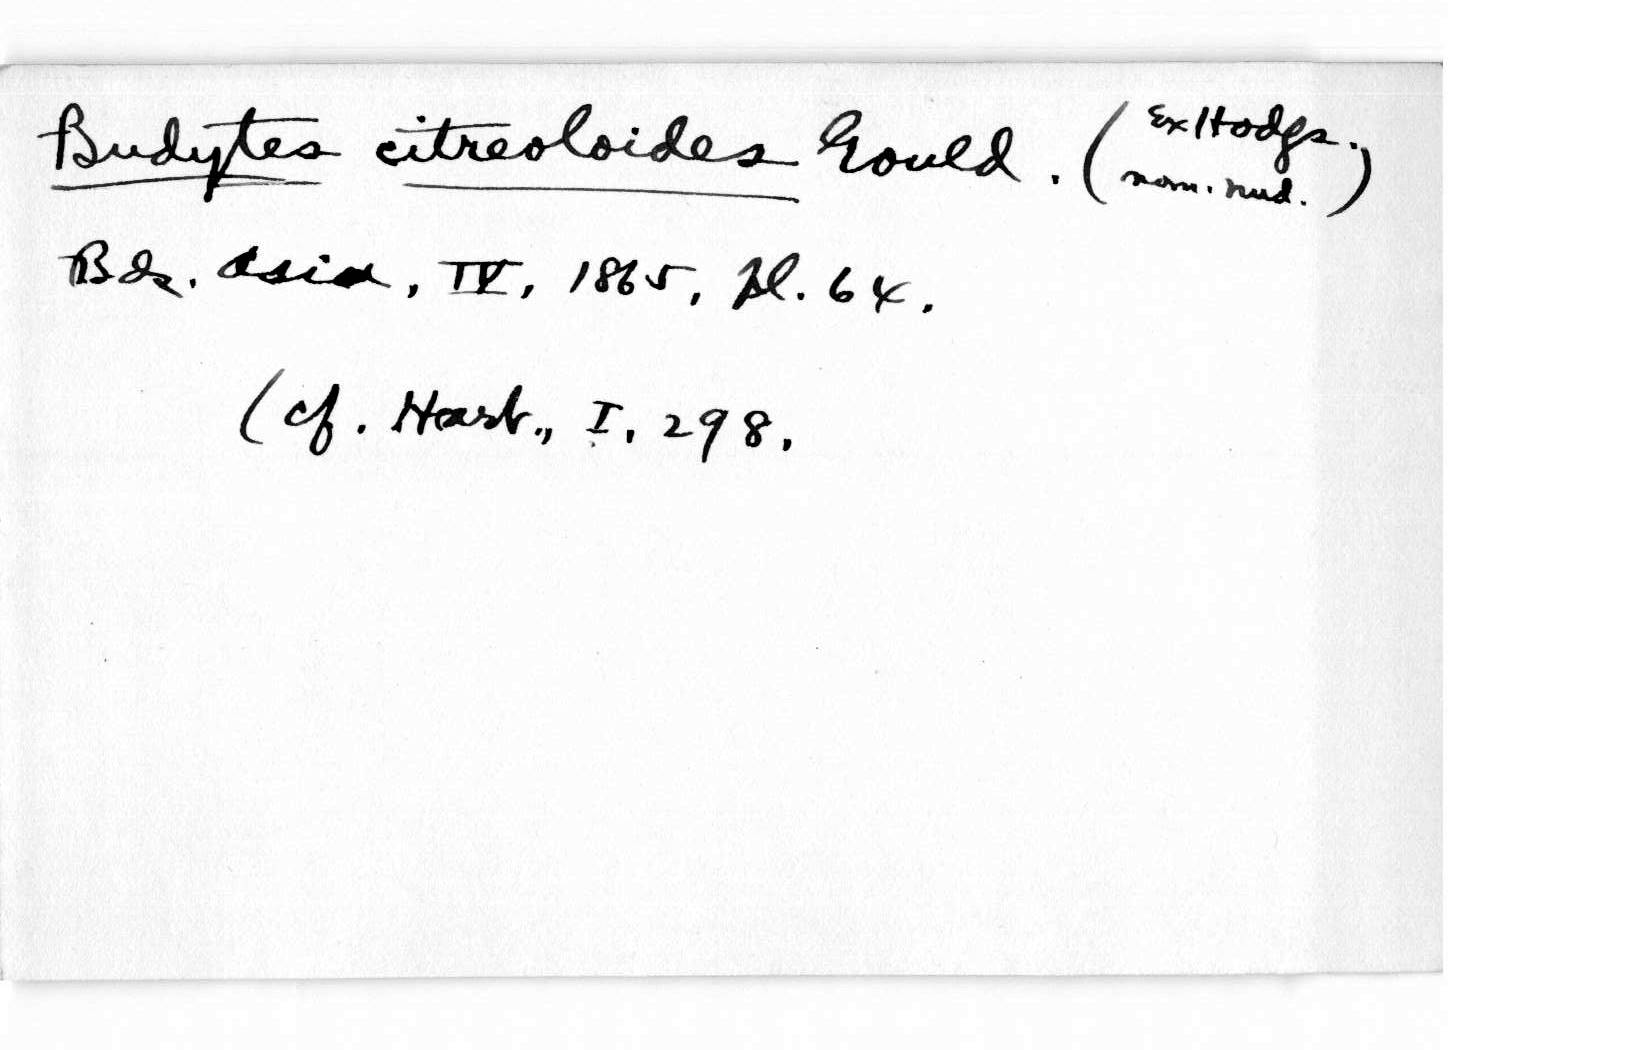 Budytes citreoloides Gould. (Ex Hodgs., nom. nud.)
Bds. Asia, IV, 1865, pl. 64.
(cf. Hart., I, 298.